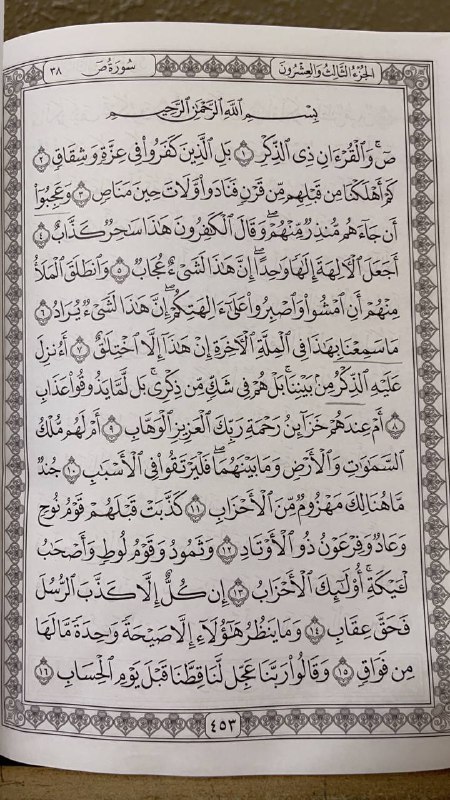 الجزء الثالث والعشرون سورة ص ٣٨
بِسْمِ ٱللَّهِ ٱلرَّحْمَٰنِ ٱلرَّحِيمِ
صٓۚ وَٱلْقُرْءَانِ ذِى ٱلذِّكْرِ ١ بَلِ ٱلَّذِينَ كَفَرُوا۟ فِى عِزَّةٍ وَشِقَاقٍ ٢
كَمْ أَهْلَكْنَا مِن قَبْلِهِم مِّن قَرْنٍ فَنَادَوا۟ وَّلَاتَ حِينَ مَنَاصٍ ٣ وَعَجِبُوٓا۟
أَن جَآءَهُم مُّنذِرٌ مِّنْهُمْۖ وَقَالَ ٱلْكَٰفِرُونَ هَٰذَا سَٰحِرٌ كَذَّابٌ ٤
أَجَعَلَ ٱلْءَالِهَةَ إِلَٰهًا وَٰحِدًاۖ إِنَّ هَٰذَا لَشَىْءٌ عُجَابٌ ٥ وَٱنطَلَقَ ٱلْمَلَأُ
مِنْهُمْ أَنِ ٱمْشُوا۟ وَٱصْبِرُوا۟ عَلَىٰٓ ءَالِهَتِكُمْۖ إِنَّ هَٰذَا لَشَىْءٌ يُرَادُ ٦
مَا سَمِعْنَا بِهَٰذَا فِى ٱلْمِلَّةِ ٱلْءَاخِرَةِ إِنْ هَٰذَآ إِلَّا ٱخْتِلَٰقٌ ٧ أَءُنزِلَ
عَلَيْهِ ٱلذِّكْرُ مِنۢ بَيْنِنَاۚ بَلْ هُمْ فِى شَكٍّ مِّن ذِكْرِىۚ بَل لَّمَّا يَذُوقُوا۟ عَذَابِ
٨ أَمْ عِندَهُمْ خَزَآئِنُ رَحْمَةِ رَبِّكَ ٱلْعَزِيزِ ٱلْوَهَّابِ ٩ أَمْ لَهُم مُّلْكُ
ٱلسَّمَٰوَٰتِ وَٱلْأَرْضِ وَمَا بَيْنَهُمَاۖ فَلْيَرْتَقُوا۟ فِى ٱلْأَسْبَٰبِ ١٠ جُندٌ
مَّا هُنَالِكَ مَهْزُومٌ مِّنَ ٱلْأَحْزَابِ ١١ كَذَّبَتْ قَبْلَهُمْ قَوْمُ نُوحٍ
وَعَادٌ وَفِرْعَوْنُ ذُو ٱلْأَوْتَادِ ١٢ وَثَمُودُ وَقَوْمُ لُوطٍ وَأَصْحَٰبُ
لْـَٔيْكَةِۚ أُو۟لَٰٓئِكَ ٱلْأَحْزَابُ ١٣ إِن كُلٌّ إِلَّا كَذَّبَ ٱلرُّسُلَ
فَحَقَّ عِقَابِ ١٤ وَمَا يَنظُرُ هَٰٓؤُلَآءِ إِلَّا صَيْحَةً وَٰحِدَةً مَّا لَهَا
مِن فَوَاقٍ ١٥ وَقَالُوا۟ رَبَّنَا عَجِّل لَّنَا قِطَّنَا قَبْلَ يَوْمِ ٱلْحِسَابِ ١٦
٤٥٣